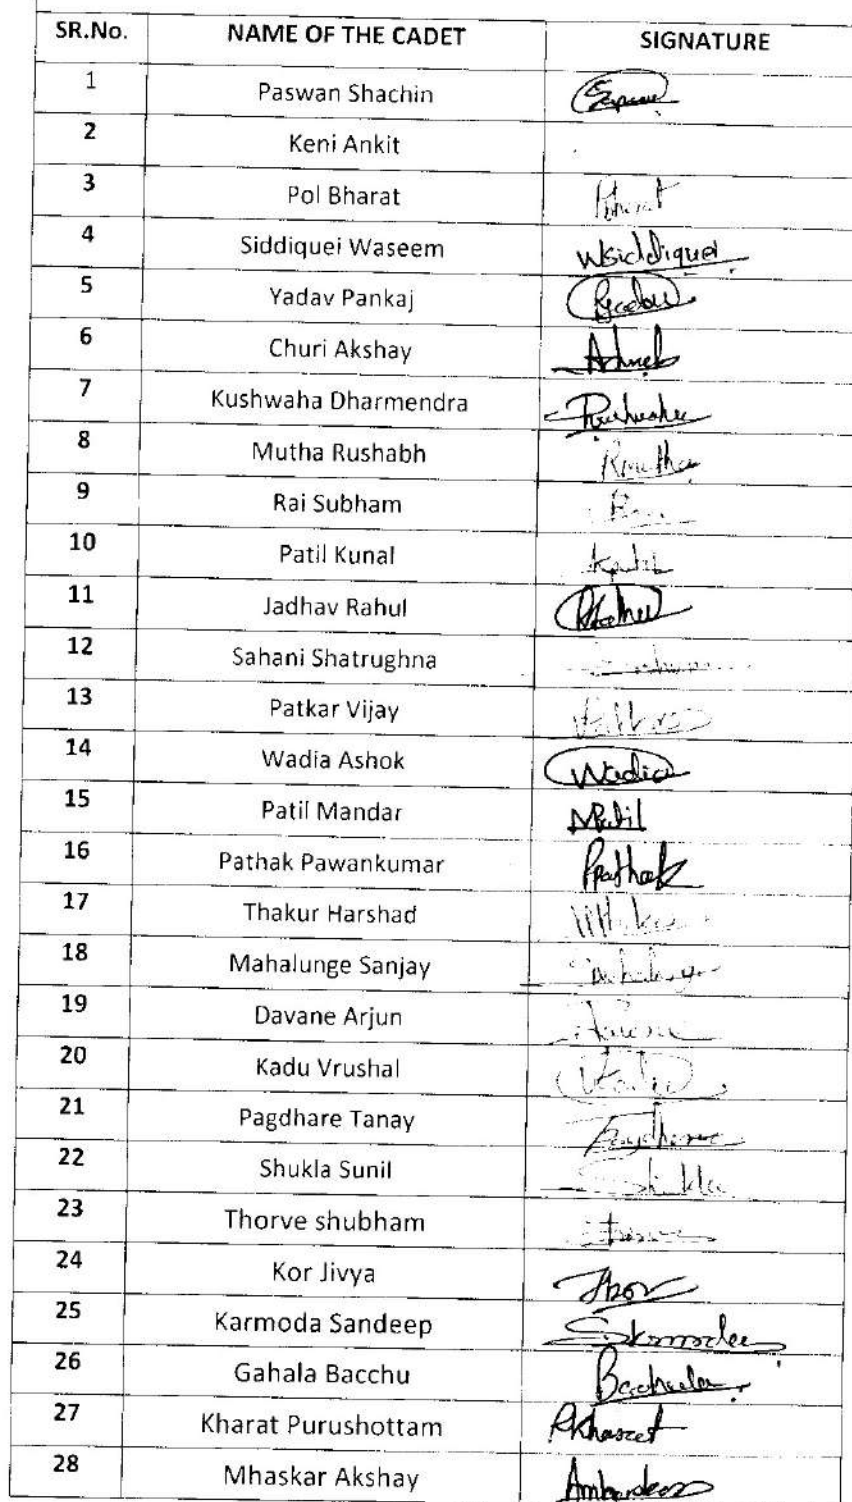 SR.No. NAME OF THE CADET SIGNATURE
1 Paswan Shachin
2 Keni Ankit
3 Pol Bharat Bharat
4 Siddiquei Waseem Wsiddiquei
5 Yadav Pankaj
6 Churi Akshay
7 Kushwaha Dharmendra
8 Mutha Rushabh Rmutha
9 Rai Subham
10 Patil Kunal
11 Jadhav Rahul
12 Sahani Shatrughna
13 Patkar Vijay
14 Wadia Ashok Wadia
15 Patil Mandar MPatil
16 Pathak Pawankumar Ppathak
17 Thakur Harshad
18 Mahalunge Sanjay
19 Davane Arjun
20 Kadu Vrushal
21 Pagdhare Tanay
22 Shukla Sunil Shukla
23 Thorve shubham
24 Kor Jivya
25 Karmoda Sandeep
26 Gahala Bacchu
27 Kharat Purushottam PKharat
28 Mhaskar Akshay